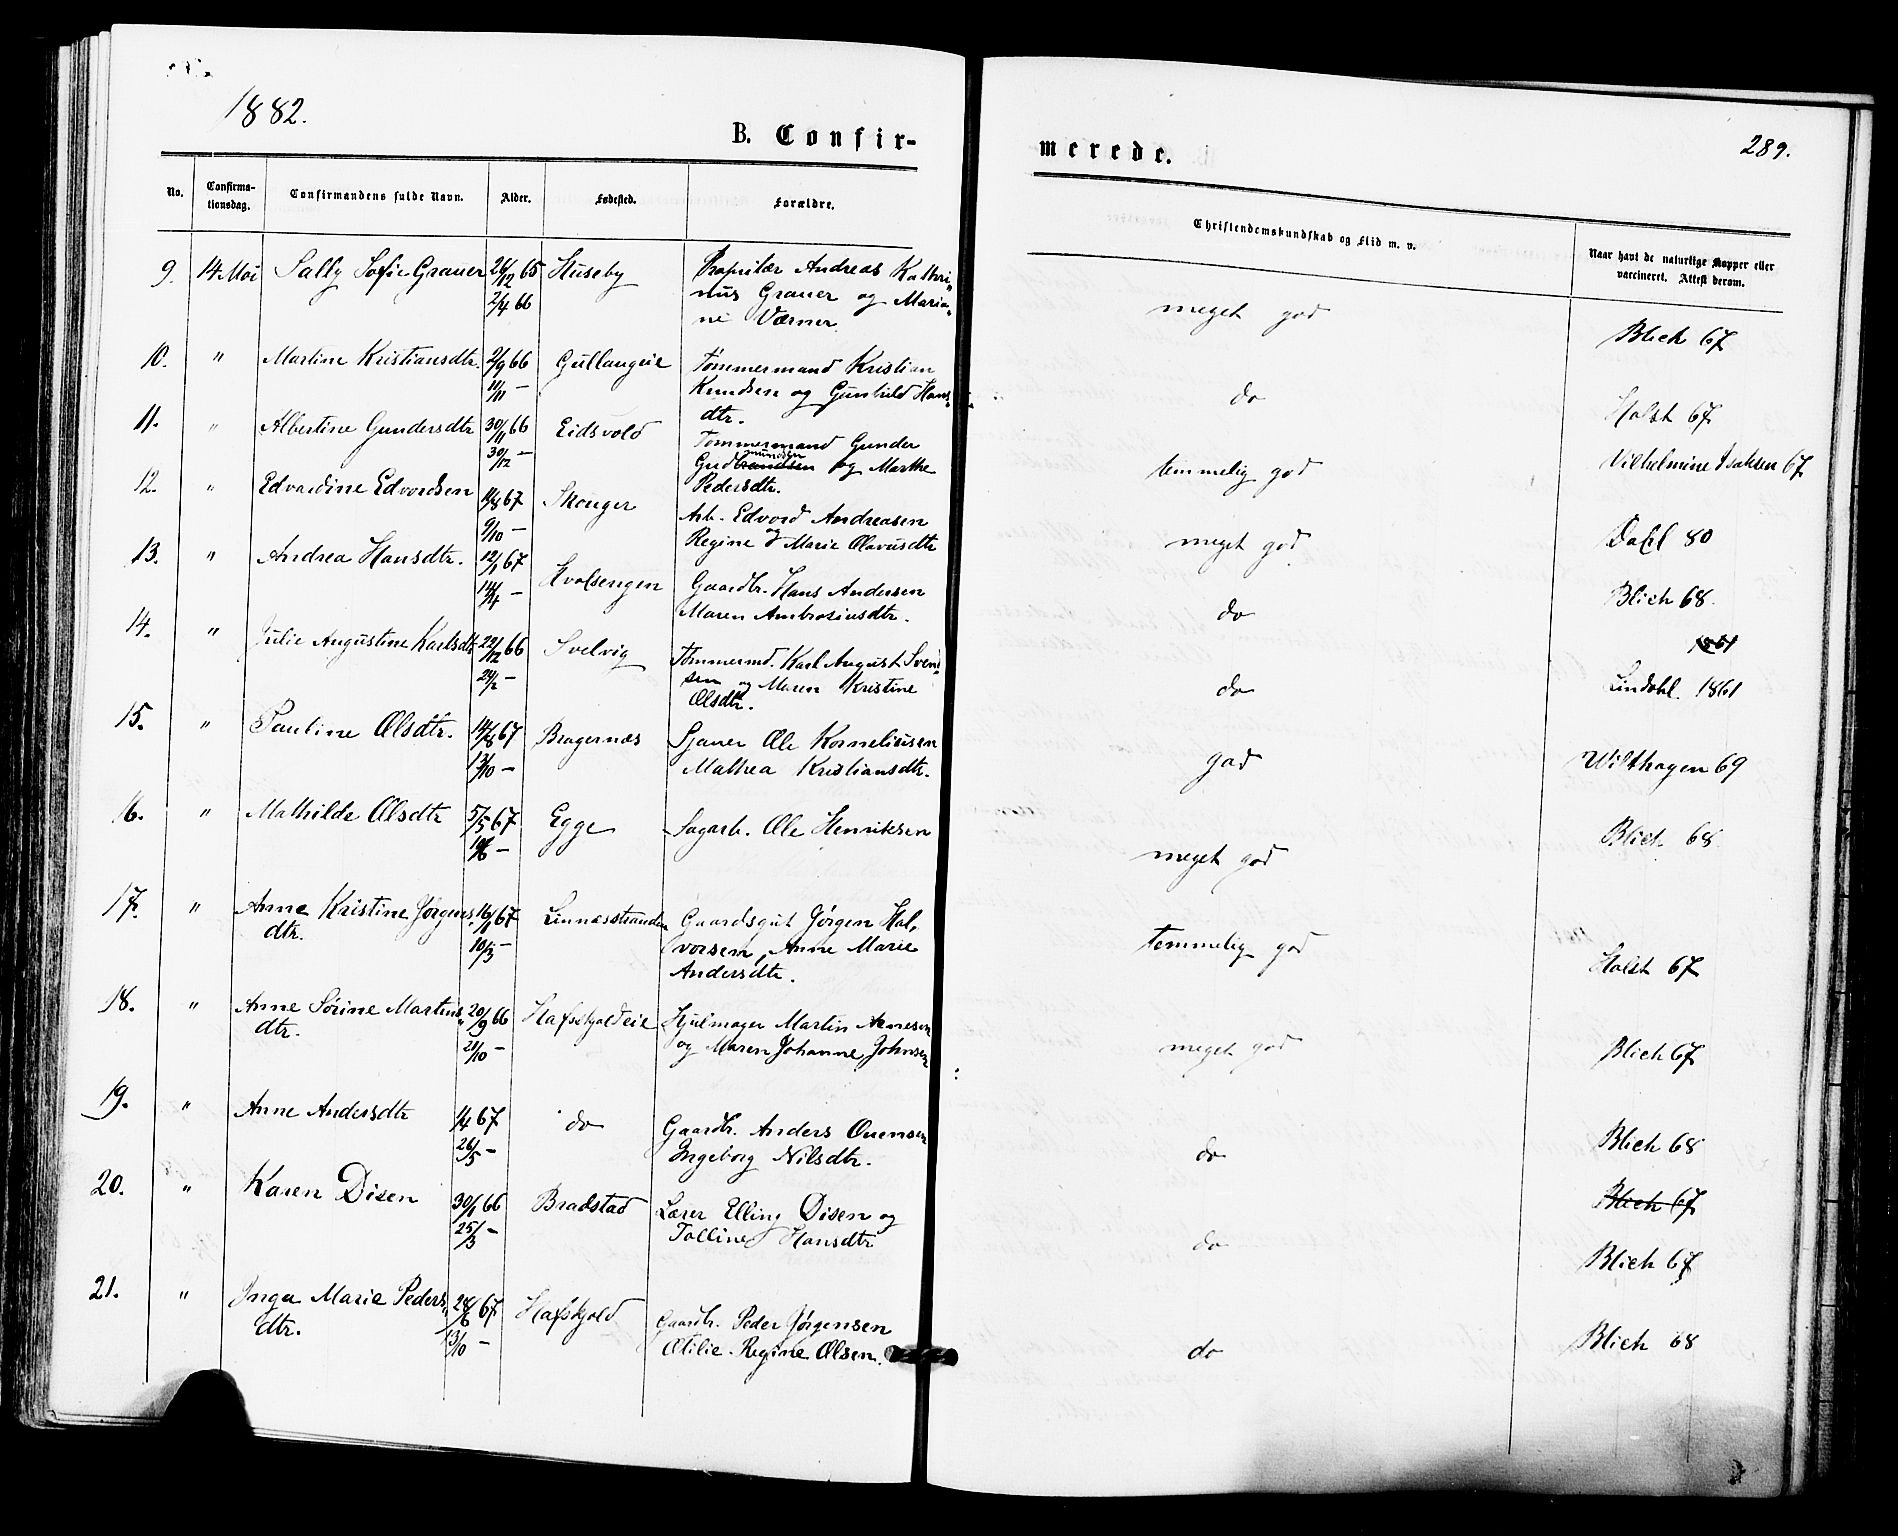 1882.
B. Confir-
merede.
289.
No.
Confirma-
tionsdag.
Confirmandens fulde Navn.
Alder.
Fødested.
Forældre.
Christendomskundskab og Flid m. v.
Naar havt de naturlige Kopper eller
vaccineret. Attest derom.
9. 14 Mai Sally Sofie Grauer 26/12 65 Huseby Proprietær Andreas Kathri-
2/4 66 nus Grauer og Maria-
ne Værner.
meget god Blich 67
10. " Martine Kristiansdtr. 2/9 66 Gullaugeie Tømmermand Kristian
11/11 – Knudsen og Gunhild Hans-
dtr.
do Holst 67
11. " Albertine Gundersdtr 30/11 66 Eidsvold Tømmermand Gunder
30/12 – Gudbrandsen og Marthe
mundsen
Pedersdtr.
temmelig god Vilhelmine Isaksen 67
12. " Edvardine Edvardsen 11/8 67 Skouger Arb. Edvard Andreasen
9/10 – Regine og Marie Olavusdtr
meget god Dahl 80
13. " Andrea Hansdtr. 12/1 67 Kvalsengen Gaardbr. Hans Andersen
14/4 – Maren Ambrosiusdtr.
do Blich 68.
14. " Julie Augustine Karlsdtr 22/12 66 Svelvig Tømmermd. Karl August Svend-
24/2 – sen og Maren Kristine
Olsdtr.
do 1861
Lindahl. 1861
15. " Pauline Olsdtr. 14/8 67 Bragernæs Sjauer Ole Korneliusen
13/10 – Mathea Kristiansdtr.
god Wilthagen 69
16. " Mathilde Olsdtr 5/5 67 Egge Sagarb. Ole Henriksen
10/6 –
meget god Blich 68
17. " Anne Kristine Jørgens- 16/1 67 Linnesstranden Gaardsgut Jørgen Hal-
dtr. 10/3 – vorsen, Anne Marie
Andersdtr.
temmelig god Holst 67
18. " Anne Sørine Martins- 20/9 66 Hafskjoldeie Hjulmager Martin Arnesen
dtr. 21/10 – og Maren Johanne Johnsen
meget god Blich 67
19. " Anne Andersdtr 1/4 67 do Gaardbr. Anders Ouensen
26/5 – Ingeborg Nilsdtr.
do Blich 68
20. " Karen Disen 30/1 66 Bradstad Lærer Elling Disen og
25/3 – Tolline Hansdtr
Blich 67
do Blich 67
21. " Inga Marie Peders- 28/6 67 Hafskjold Gaardbr. Peder Jørgensen
dtr. 13/10 – Otilie Regine Olsen.
do Blich 68